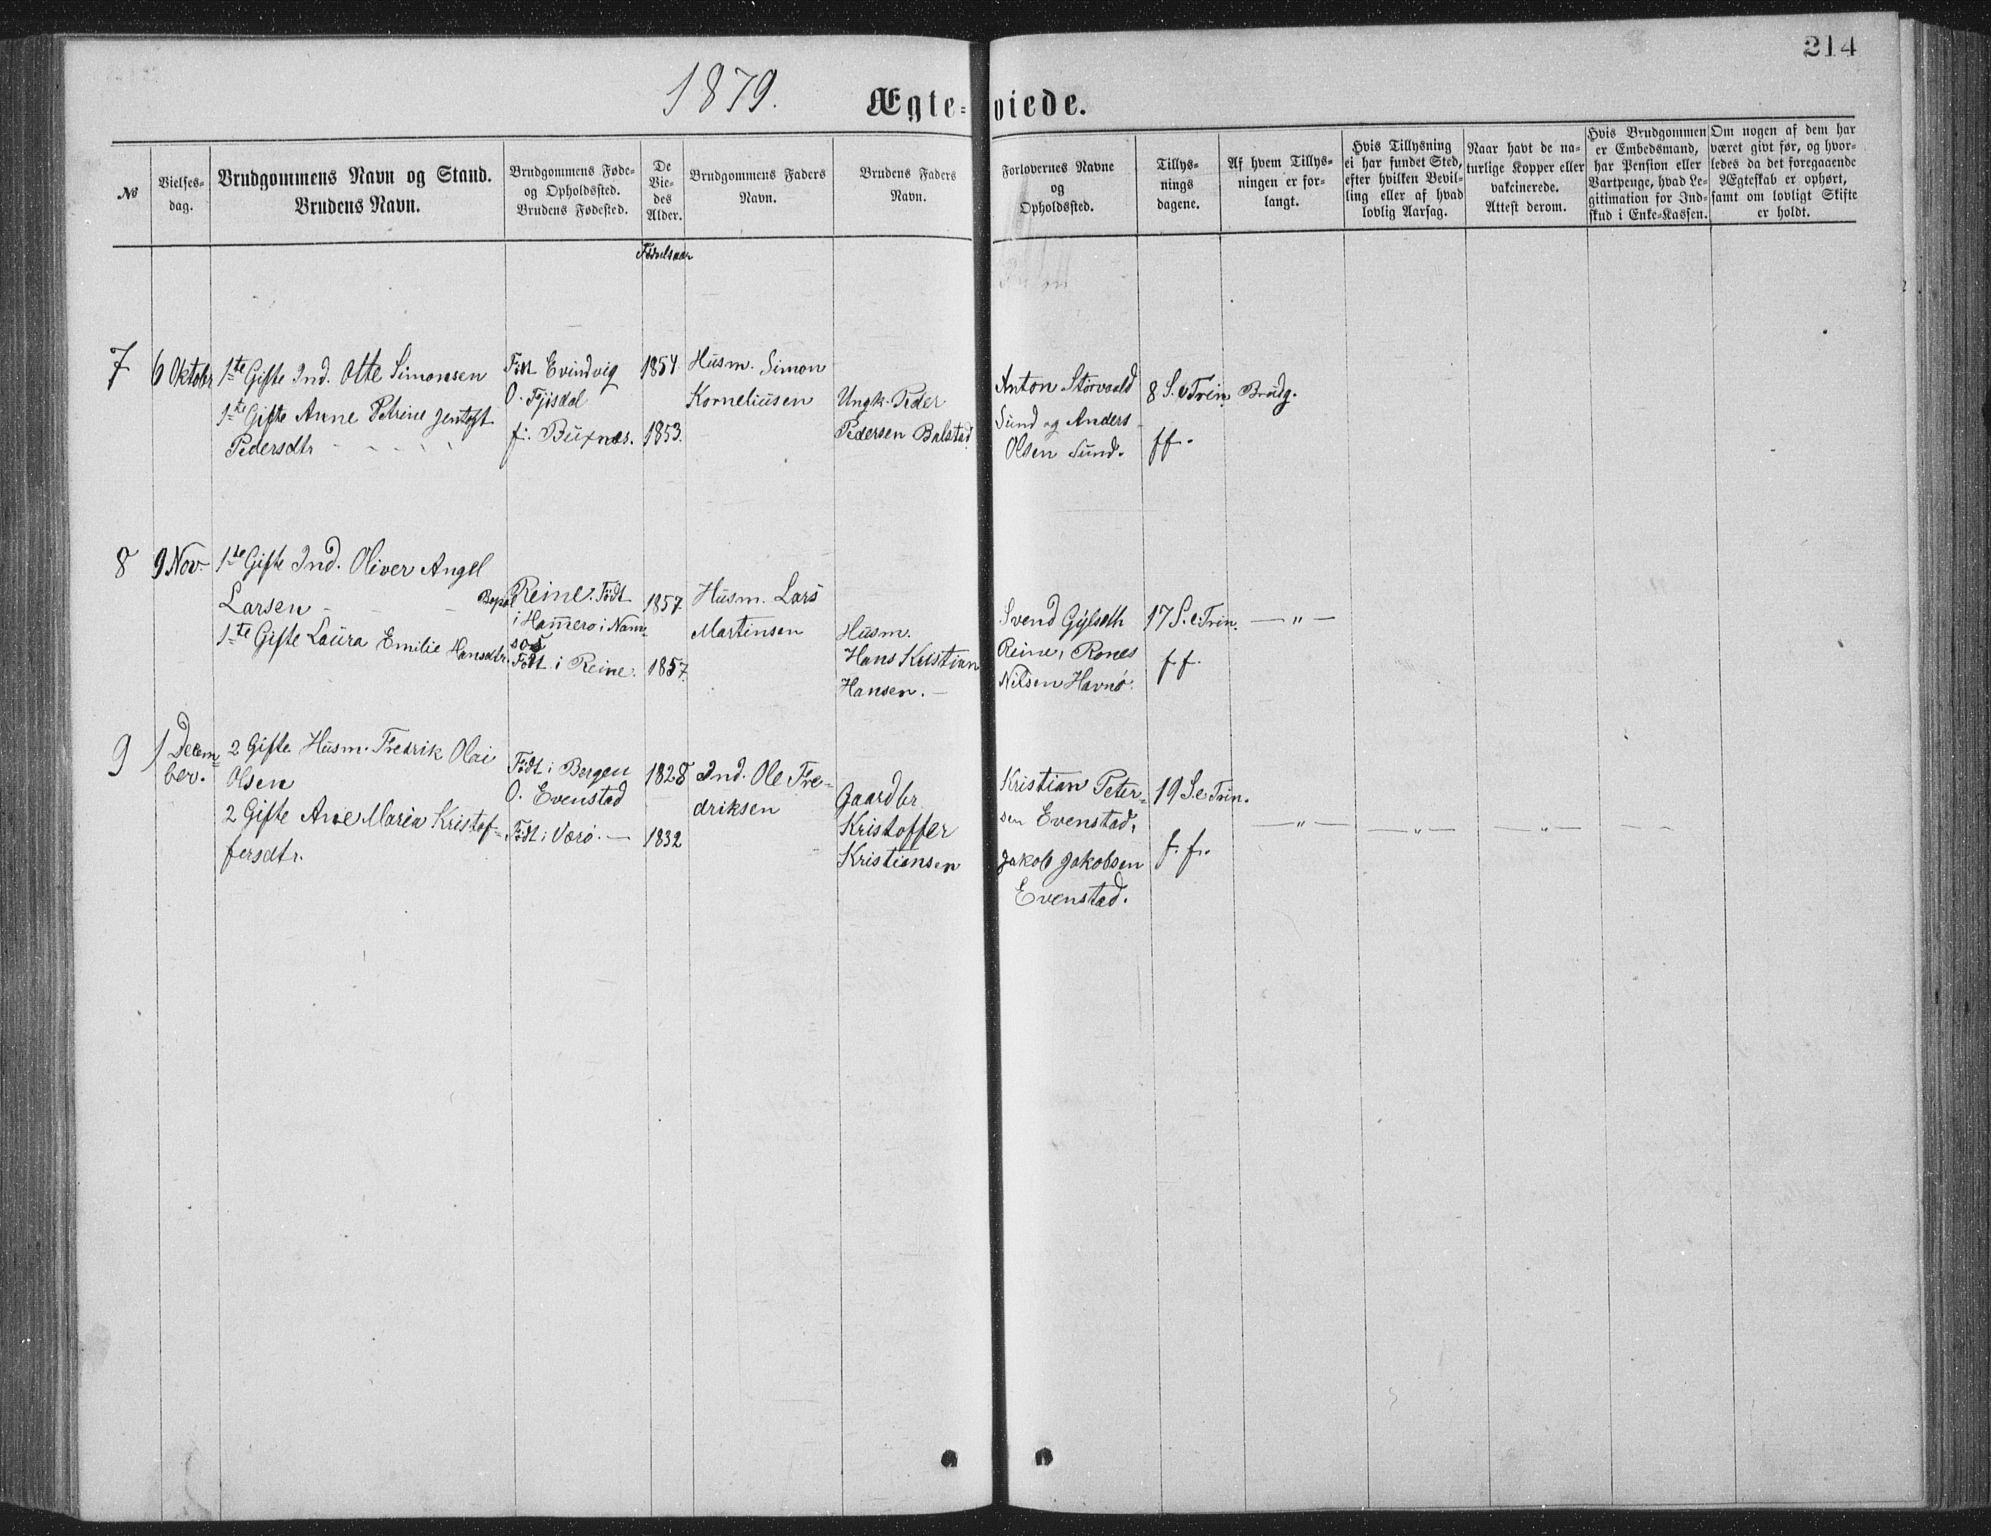 214
1879.
Ægte-viede.
No
Vielses-
dag.
Brudgommens Navn og Stand.
Brudens Navn.
Brudgommens Føde-
og Opholdssted.
Brudens Fødested.
De
Vie-
des
Alder.
Brudgommens Faders
Navn.
Brudens Faders
Navn.
Forlovernes Navne
og
Opholdssted.
Tillys-
nings
dagene.
Af hvem Tillys-
ningen er for-
langt.
Hvis Tillysning
ei har fundet Sted,
efter hvilken Bevil-
ling eller af hvad
lovlig Aarsag.
Naar havt de na-
turlige Kopper eller
vakcinerede.
Attest derom.
Hvis Brudgommen
er Embedsmand,
har Pension eller
Vartpenge, hvad Le-
gitimation for Ind-
skud i Enke-Kassen.
Om nogen af dem har
været givt før, og hvor-
ledes da det foregaaende
Ægteskab er ophørt,
samt om lovligt Skifte
er holdt.
Fødselsaar
7
6 Oktobr
1ste Gifte Ind. Otte Simonsen
1ste Gifte Anne Petrine Jentoft
Pedersdtr
Født Evindvig
O. Fjisdal
f. Buxnæs.
1854
1853.
Husm. Simon
Korneliusen
Ungk. Peder
Pedersen Balstad
Anton Storvald
Sund og Anders
Olsen Sund.
8 S. e Trin
ff.
Brudg.
8
9 Nov.
1ste Gifte Ind. Oliver Angel
Larsen
1ste Gifte Laura Emilie Hansdtr.
Bopæl
Reine. Født
i Hammerø i Nam-
sos
Født i Reine.
1857
1857.
Husm. Lars
Martinsen
Husm.
Hans Kristian
Hansen.
Svend Gylseth
Reine, Rones
Nilsen Havnø.
17 S. e. Trin.
f.f.
— " —
9
1 Decem-
ber.
2 Gifte Husm. Fredrik Olai
Olsen
2 Gifte Ane Maria Kristof-
fersdtr.
Født i Bergen
O. Evenstad
Født i Værø. —
1828
1832
Ind. Ole Fre-
driksen
Gaardbr.
Kristoffer
Kristiansen
Kristian Peter-
sen Evenstad,
Jakob Jakobsen
Evenstad.
19 S. e Trin.
f. f.
— " —
— " —
— " —
— " —